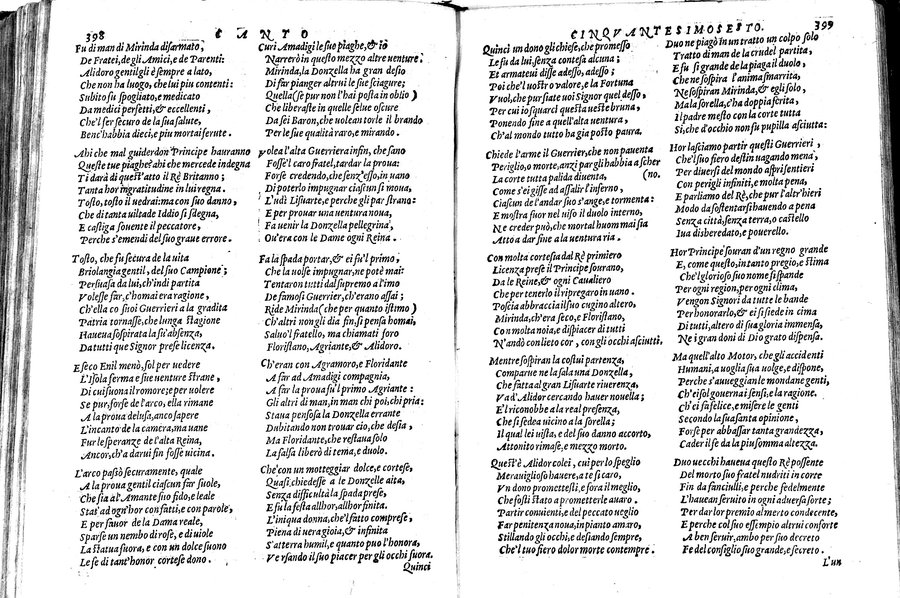 398 CANTO
Fu di man di Mirinda disarmato,
De Fratei, de gli Amici, e de Parenti:
Alidoro gentil gli è sempre a lato,
Che non ha luogo, che lui piu contenti:
Subito fu spogliato, e medicato
Da medici perfetti, & eccellenti,
Che'l fer securo de la sua salute,
Bench'habbia dieci, e piu mortai ferute.
Ahi che mal guiderdon Principe hauranno
Queste tue piaghe? ahi che mercede indegna
Ti darà di quest'atto il Rè Britanno;
Tanta hor ingratitudine in lui regna.
Tosto, tosto il uedrai: ma con suo danno,
Che di tanta uiltade Iddio si sdegna,
E castiga souente il peccatore,
Perche s'emendi del suo graue errore.
Tosto, che fu secura de la uita
Briolangia gentil, del suo Campione;
Persuasa da lui, ch'indi partita
Volesse far, c'homai era ragione,
Ch'ella co suoi Guerrieri a la gradita
Patria tornasse, che lunga stagione
Haueua sospirata la su'absenza,
Da tutti que Signor prese licenza.
E seco Enil menò, sol per uedere
L'Isola ferma e sue uenture strane,
Di cui suona il romore; e per uolere
Se pur, forse de l'arco, ella rimane
A la proua delusa, anco sapere
L'incanto de la camera, ma uane
Fur le speranze de l'alta Reina,
Ancor, ch'a darui fin fosse uicina.
L'arco passò securamente, quale
A la proua gentil ciascun far suole,
Che sia al' Amante suo fido, e leale
Stat' ad ogn'hor con fatti, e con parole,
E per fauor de la Dama reale,
Sparse un nembo di rose, e di uiole
La statua fuora, e con un dolce suono
Le fe di tant'honor cortese dono.
Curi Amadigi le sue piaghe, & io
Narrerò in questo mezzo altre uenture:
Mirinda, la Donzella ha gran desio
Di far pianger altrui le sue sciagure;
Quella (se pur non l'hai posta in oblio)
Che liberaste in quelle selue oscure
Da sei Baron, che uolean torle il brando
Per le sue qualità raro, e mirando.
Volea l'alta Guerriera infin, che sano
Fosse'l caro fratel, tardar la proua:
Forse credendo, che senz'esso, in uano
Di poterlo impugnar ciascun si moua,
L'udì Lisuarte, e perche gli par strano:
E per prouar una uentura noua,
Fa uenir la Donzella pellegrina,
Ou'era con le Dame ogni Reina.
Fa la spada portar, & ei fu'l primo,
Che la uolse impugnar, ne potè mai:
Tentaron tutti dal supremo a l'imo
De famosi Guerrier, ch'erano assai;
Ride Mirinda (che per quanto istimo)
Ch'altri non gli dia fin, si pensa homai,
Saluo'l fratello, ma chiamati foro
Floristano, Agriante, & Alidoro.
Ch'eran con Agramoro, e Floridante
A far ad Amadigi compagnia,
A far la proua fu'l primo Agriante:
Gli altri di man, in man chi poi, chi pria:
Staua pensosa la Donzella errante
Dubitando non trouar cio, che desia,
Ma Floridante, che restaua solo
La salsa liberò di tema, e duolo.
Che con un motteggiar dolce, e cortese,
Quasi, chiedesse a le Donzelle aita,
Senza difficultà la spada prese,
E fu la festa allhor, allhor finita.
L'iniqua donna, che'l fatto comprese,
Piena di uera gioia, & infinita
S'atterra humil, e quanto puo l'honora,
Versando il suo piacer per gli occhi fuora.
Quinci
CINQVANTESIMOSESTO. 399
Quinci un dono gli chiese, che promesso
Le fu da lui, senza contesa alcuna:
Et armateui disse adesso, adesso;
Poi che'l uostro valore, e la Fortuna
Vuol, che pur siate uoi Signor quel desso,
Per cui io squarci questa ueste bruna,
Ponendo fine a quell'alta uentura,
Ch'al mondo tutto ha gia posto paura.
Chiede l'arme il Guerrier, che non pauenta
Periglio, o morte, anzi par gli habbia a scher
La corte tutta palida diuenta, (no.
Come s'ei gisse ad assalir l'inferno,
Ciascun de l'andar suo s'ange, e tormenta:
E mostra fuor nel uiso il duolo interno,
Ne creder può, che mortal huom mai sia
Atto a dar fine a la uentura ria.
Con molta cortesia dal Rè primiero
Licenza prese il Principe sourano,
Da le Reine, & ogni Caualiero
Che per tenerlo il ripregaro in uano.
Poscia abbraccia il suo cugino altero,
Mirinda, ch'era seco, e Floristano,
Con molta noia, e dispiacer di tutti
N'andò con lieto cor, con gli occhi asciutti.
Mentre sospiran la costui partenza,
Comparue ne la sala una Donzella,
Che fatta al gran Lisuarte riuerenza,
Va d'Alidor cercando hauer nouella;
E'l riconobbe a la real presenza,
Che si sedea uicino a la sorella;
Il qual lei uista, e del suo danno accorto,
Attonito rimase, e mezzo morto.
Quest'è Alidor colei, cui per lo speglio
Merauiglioso hauere, a te sì caro,
Vn dono promettesti, e fora il meglio,
Che fosti stato a prometterle auaro.
Partir conuienti, e del peccato ueglio
Far penitenza noua, in pianto amaro,
Stillando gli occhi, e desiando sempre,
Che'l tuo fiero dolor morte contempre.
Duo ne piagò in un tratto un colpo solo
Tratto di man de la crudel partita,
E fu sì grande de la piaga il duolo,
Che ne sospira l'anima smarrita,
Ne sospiran Mirinda, & egli solo,
Ma la sorella, c'ha doppia ferita,
Il padre mesto con la corte tutta
Sì, che d'occhio non fu pupilla asciutta:
Hor lasciamo partir questi Guerrieri,
Che'l suo fiero destin uagando mena,
Per diuersi del mondo aspri sentieri
Con perigli infiniti, e molta pena,
E parliamo del Rè, che pur l'altr'hieri
Modo da sostentarsi hauendo a pena
Senza città, senza terra, o castello
Iua disheredato, e pouerello.
Hor Principe souran d'un regno grande
E, come questo, in tanto pregio, e stima
Che'l glorioso suo nome si spande
Per ogni region, per ogni clima,
Vengon Signori da tutte le bande
Per honorarlo, & ei si siede in cima
Di tutti, altero di sua gloria immensa,
Ne i gran doni di Dio grato dispensa.
Ma quell'alto Motor, che gli accidenti
Humani, a uoglia sua uolge, e dispone,
Perche s'auueggan le mondane genti,
Ch'ei sol gouerna i sensi, e la ragione.
Ch'ei fa felice, e misere le genti
Secondo la sua santa opinione,
Forse per abbassar tanta grandezza,
Cader il fe da la piu somma altezza.
Duo uecchi haueua questo Rè possente
Del morto suo fratel nudriti in corte
Fin da fanciulli, e perche fedelmente
L'hauean seruito in ogni aduersa sorte;
Per dar lor premio al merto condecente,
E perche col suo essempio altrui conforte
A ben seruir, ambo per suo decreto
Fe del consiglio suo grande, e secreto.
L'un